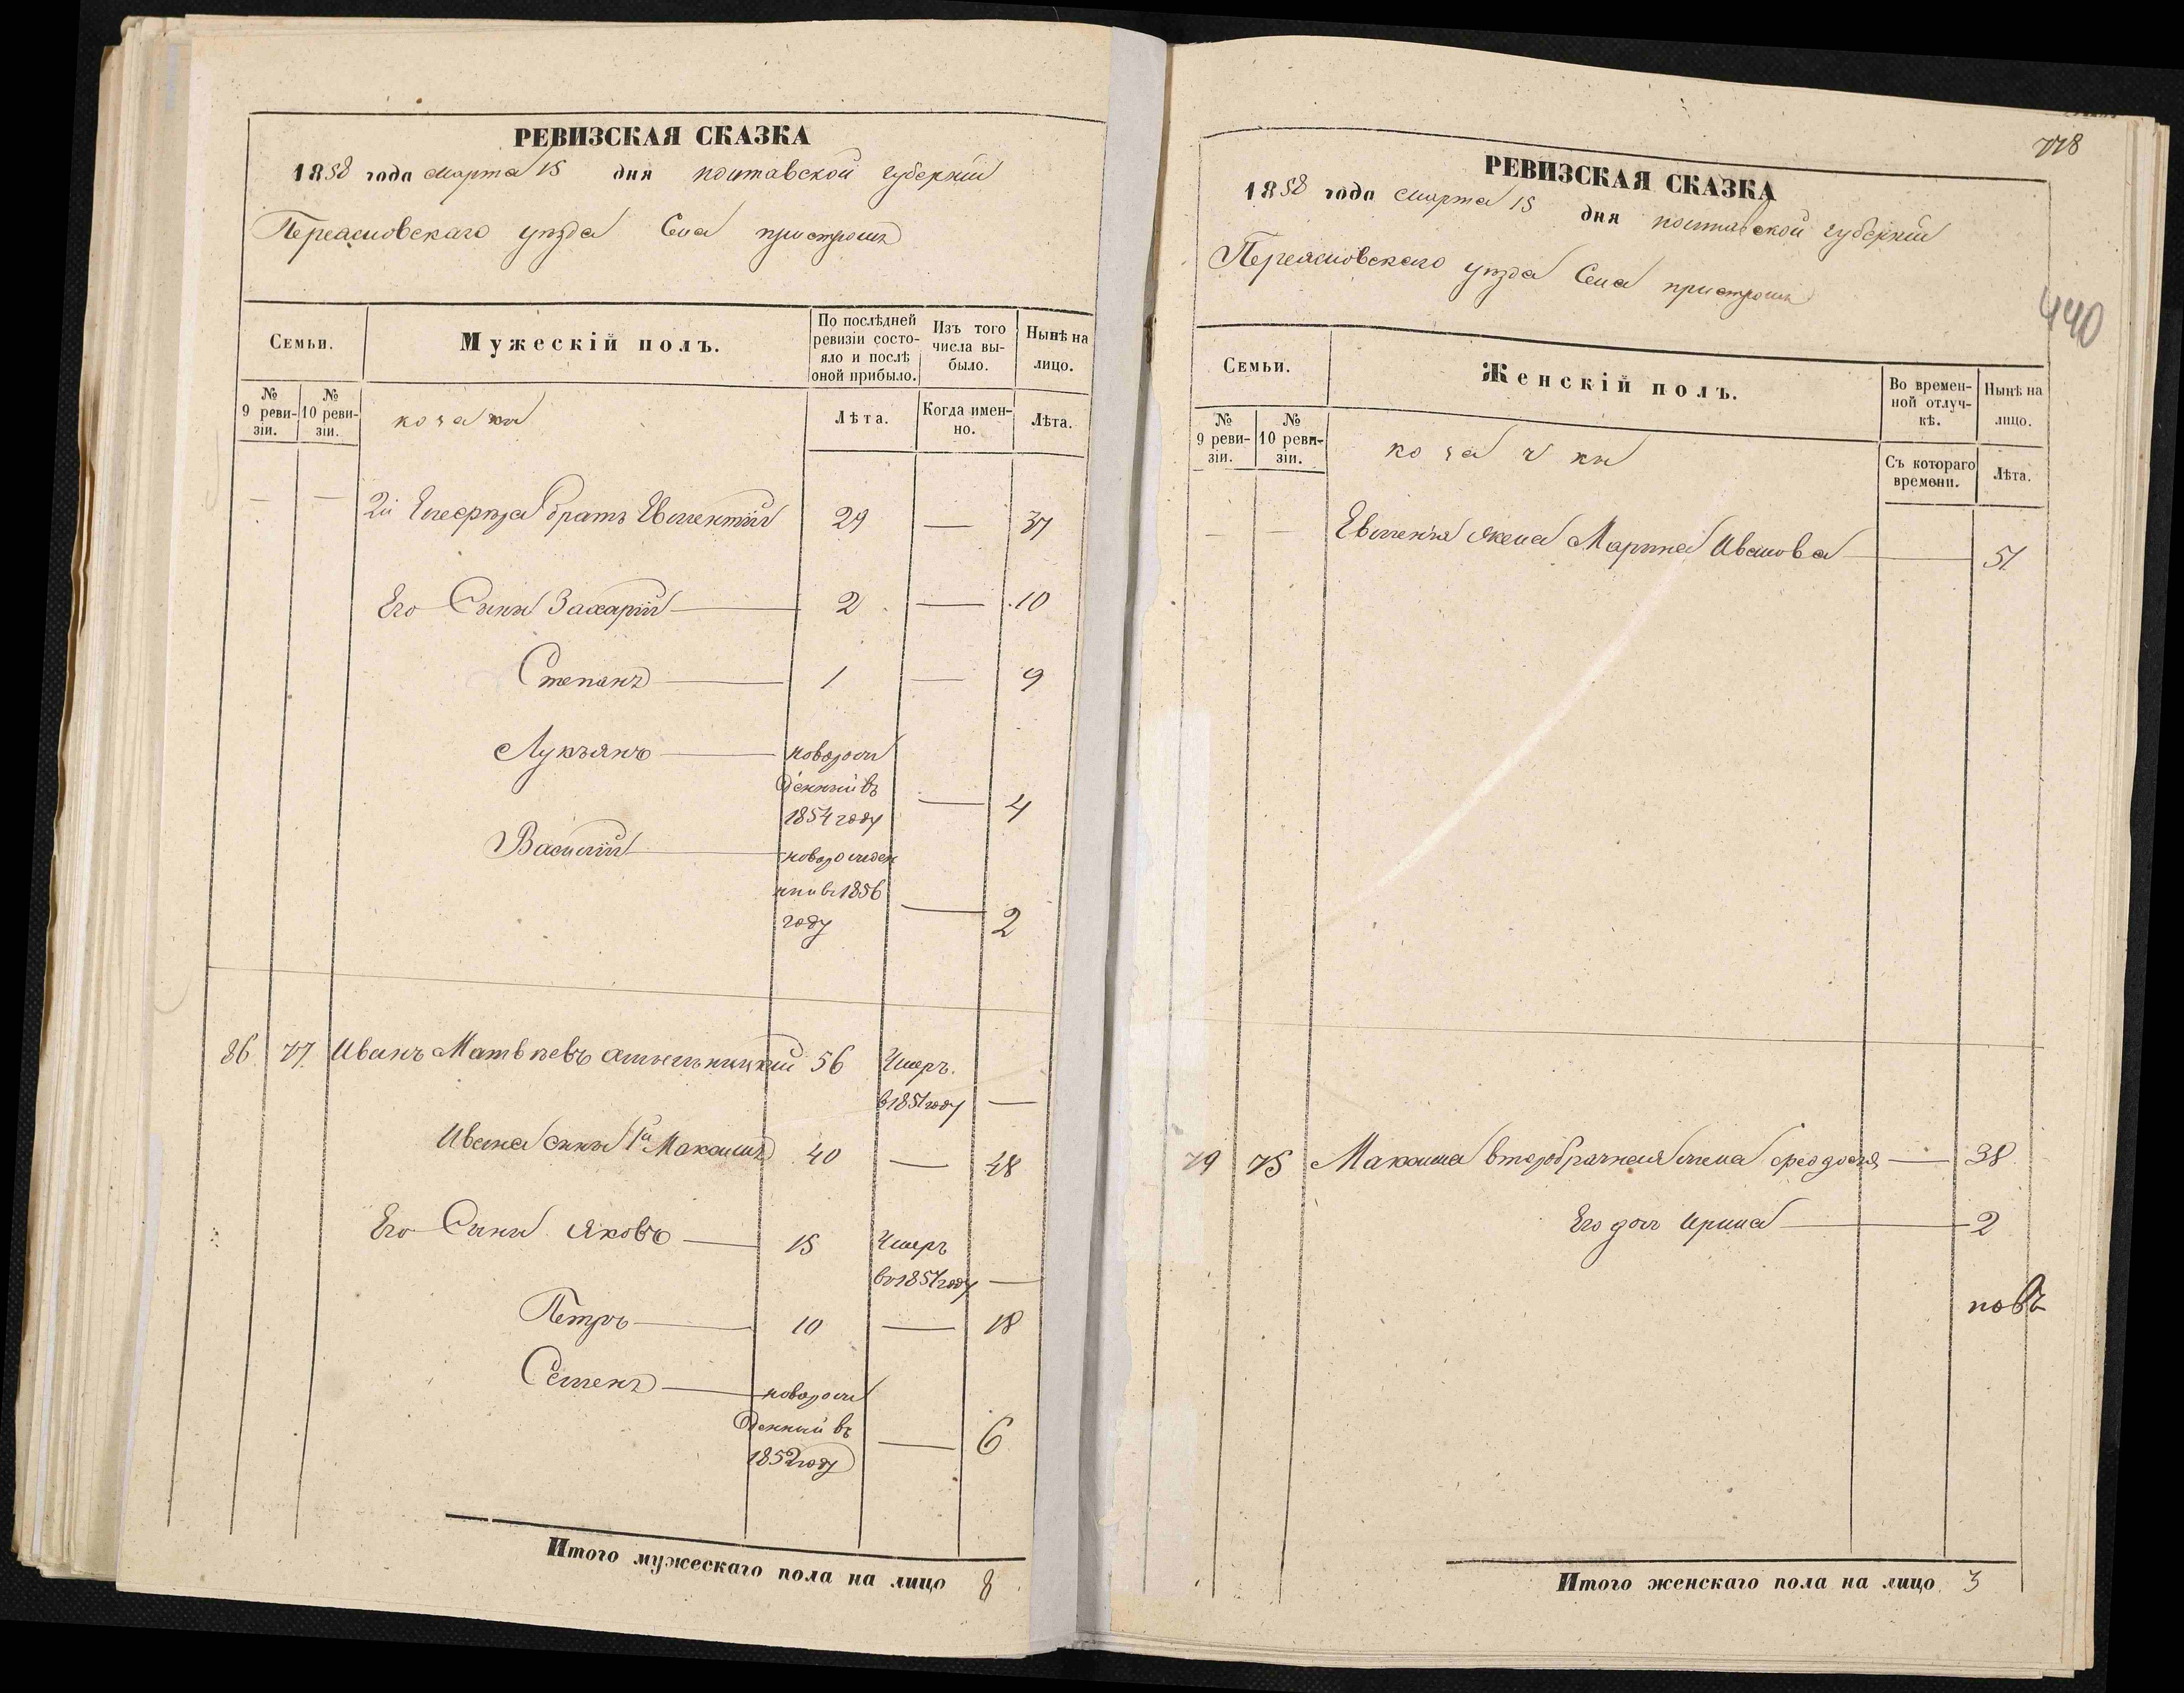 РЕВИЗСКАЯ СКАЗКА
1858 года марта 15 дня полтавской губерніи
Переясловскаго уезда Села пристромъ
Семьи.
Мужескій полъ.
По послѣдней ревизіи состояло и послѣ оной прибыло.
Изъ того числа выбыло.
Нынѣ на лицо.
№ 9 ревизіи.
№ 10 ревизіи.
козаки
Лѣта.
Когда именно.
Лѣта.
— — 2й братъ 29 — 37
Его Сыны Захарій 2 — 10
Степанъ 1 — 9
Лукьянъ — новорож
денный въ
1854 году — 4
Василій — новорожден
ный въ 1856
году — 2
86 77 Иванъ Матвѣевъ 56 Умеръ
в 1851 году —
Ивана сыны 1й Максимъ 40 — 48
Его Сыны Яковъ — 15 Умеръ
въ 1851 году —
Петръ — 10 — 18
Семенъ — новорож
денный въ
1852 году — 6
Итого мужескаго пола на лицо 8
778
РЕВИЗСКАЯ СКАЗКА
1858 года марта 15 дня полтавской губерніи
Переясловскаго уезда Села пристромъ
440
Семьи.
Женскій полъ.
Во временной отлучкѣ.
Нынѣ на лицо.
№ 9 ревизіи.
№ 10 ревизіи.
козачки
Съ котораго времени.
Лѣта.
— — жена Марина Иванова — 51
79 75 Максима второбрачная жена Феодосія — 38
Его доч Ирина — 2
Итого женскаго пола на лицо 3